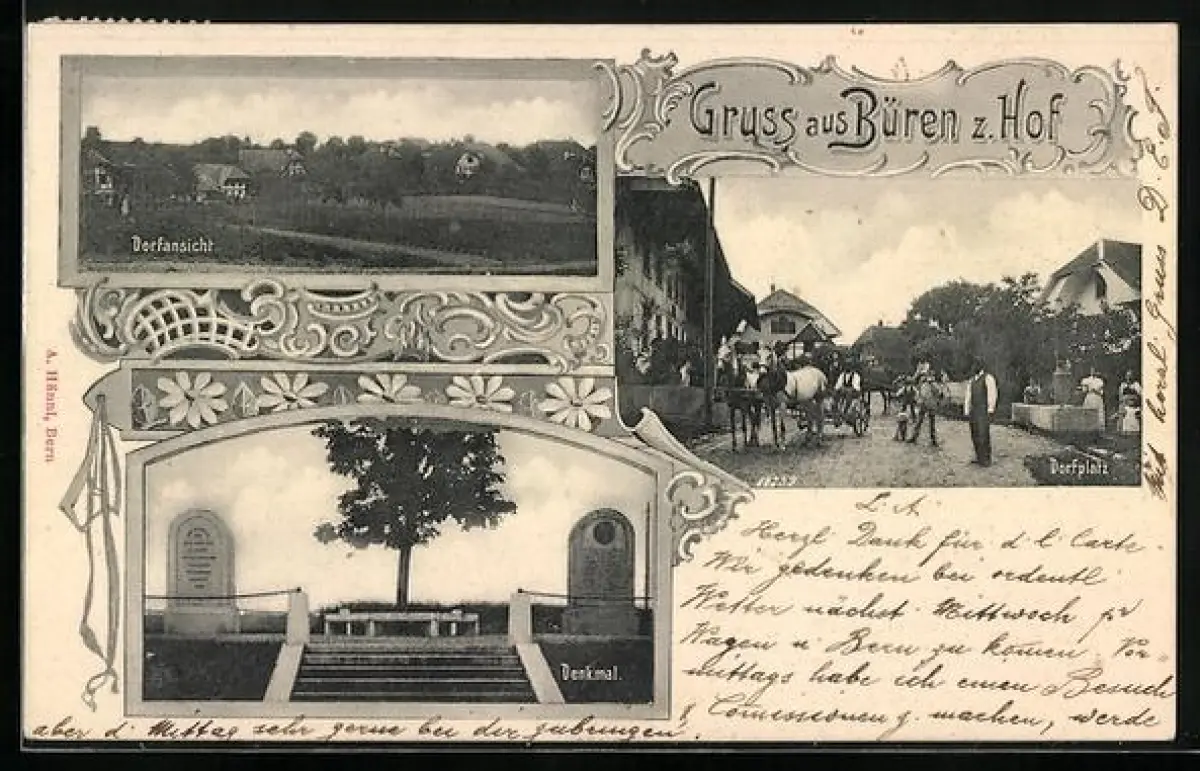 Gruss aus Büren z. Hof
Dorfansicht
18239
Dorfplatz
Denkmal.
A. Hänni, Bern
L. A.
Herzl Dank für d. l. Carte.
Wir gedenken bei ordentl
Wetter nächst. Mittwoch pr
Wagen n Bern zu komen. Vor=
mittags habe ich einen Besuch
& Comissionen z. machen, werde
aber d. Mittag sehr gerne bei dir zubringen.
Mit herzl. Gruss D. E. J.